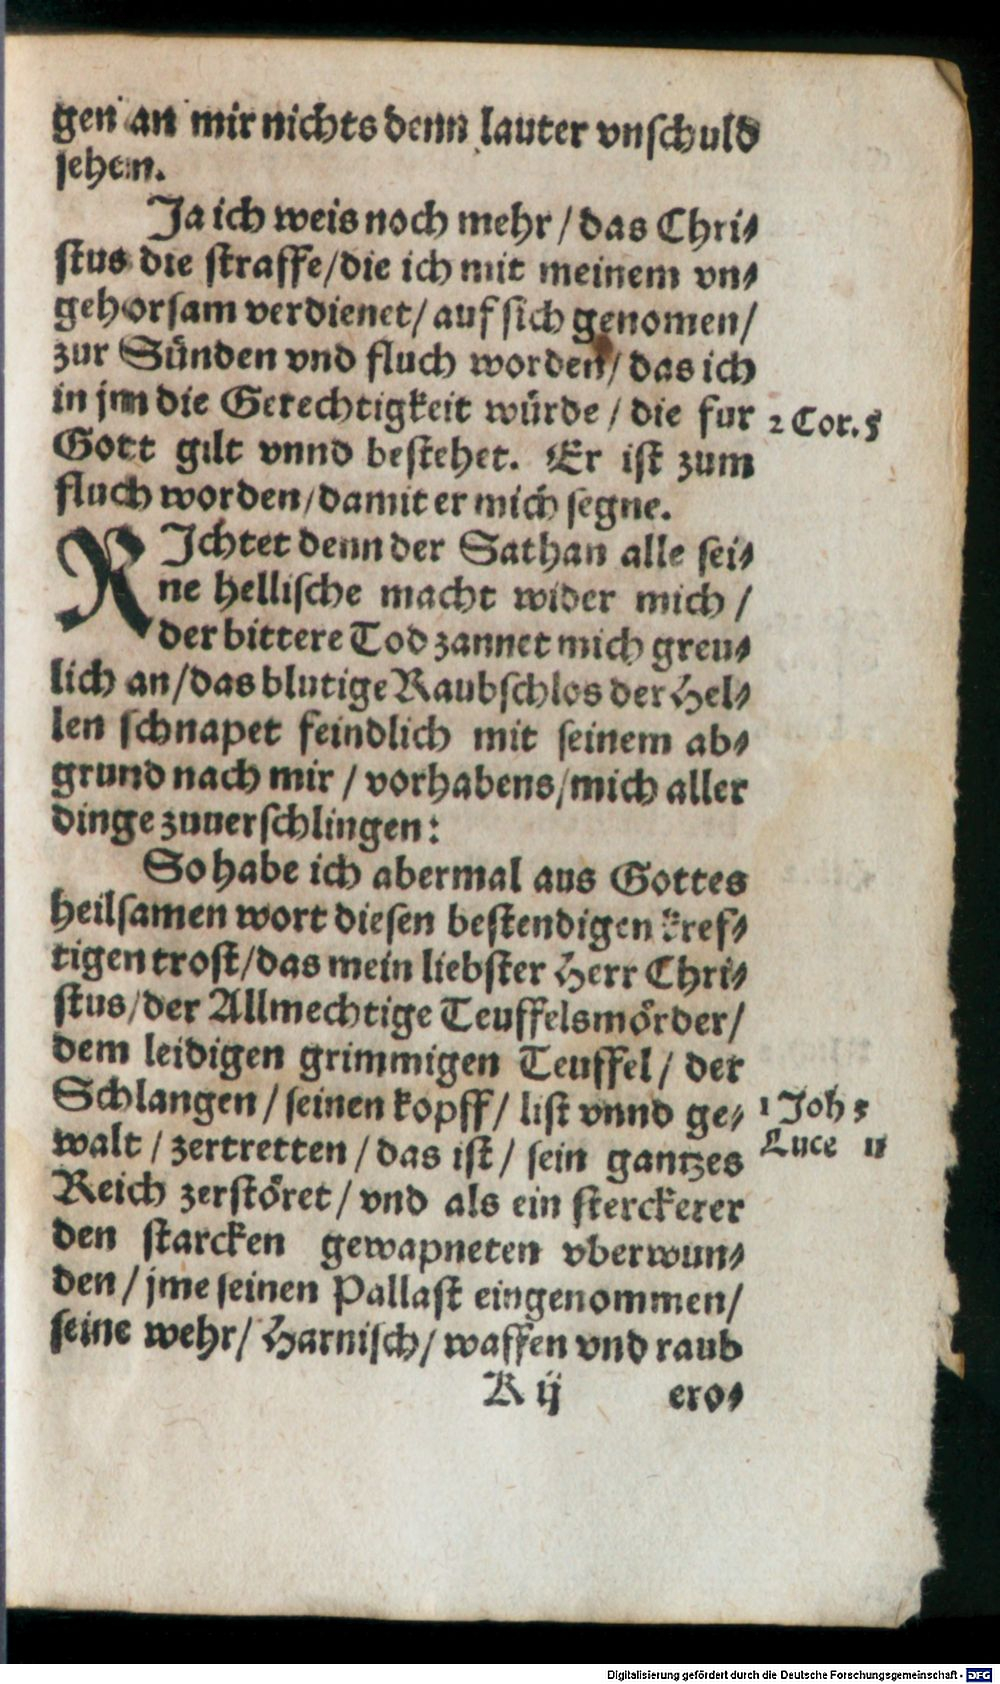 gen an mir nichts denn lauter vnschuld
sehen.
Ja ich weis noch mehr / das Chri⸗
stus die straffe / die ich mit meinem vn⸗
gehorsam verdienet / auf sich genomen /
zur Sünden vnd fluch worden / das ich
in jm die Gerechtigkeit würde / die fur
2 Cor. 5
Gott gilt vnnd bestehet. Er ist zum
fluch worden / damit er mich segne.
RJchtet denn der Sathan alle sei⸗
ne hellische macht wider mich /
der bittere Tod zannet mich greu⸗
lich an / das blutige Raubschlos der Hel⸗
len schnapet feindlich mit seinem ab⸗
grund nach mir / vorhabens / mich aller
dinge zuuerschlingen:
So habe ich abermal aus Gottes
heilsamen wort diesen bestendigen kref⸗
tigen trost / das mein liebster Herr Chri⸗
stus / der Allmechtige Teuffelsmörder /
dem leidigen grimmigen Teuffel / der
Schlangen / seinen kopff / list vnnd ge⸗
1 Joh 5
walt / zertretten / das ist / sein gantzes
Luce 11
Reich zerstöret / vnd als ein sterckerer
den starcken gewapneten vberwun⸗
den / jme seinen Pallast eingenommen /
seine wehr / Harnisch / waffen vnd raub
K ij ero⸗
Digitalisierung gefördert durch die Deutsche Forschungsgemeinschaft - DFG